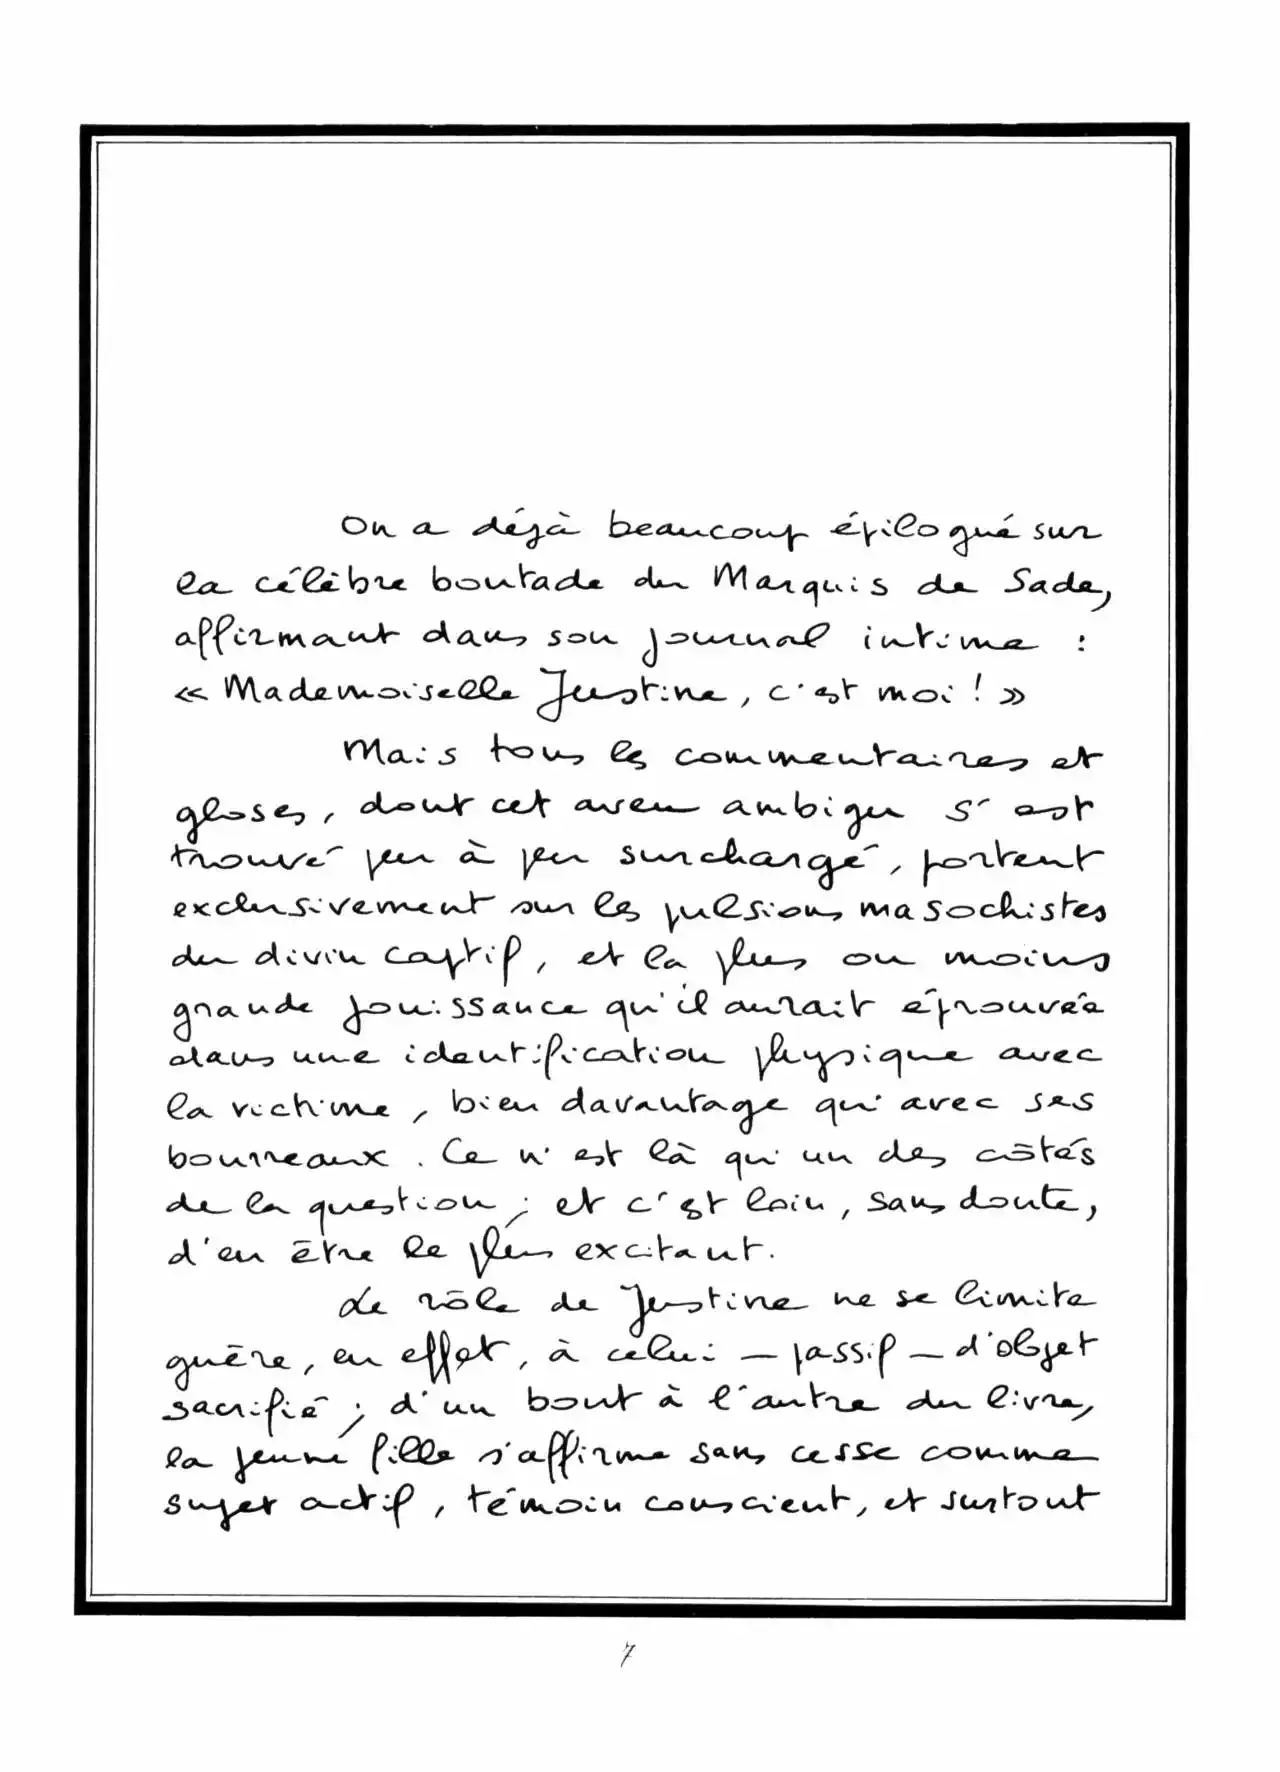 On a déjà beaucoup épilogué sur
la célèbre boutade du Marquis de Sade,
affirmant dans son journal intime :
« Mademoiselle Justine, c'est moi ! »
Mais tous les commentaires et
gloses, dont cet aveu ambigu s'est
trouvé peu à peu surchargé, portent
exclusivement sur les pulsions masochistes
du divin captif, et la plus ou moins
grande jouissance qu'il aurait éprouvée
dans une identification physique avec
la victime, bien davantage qu'avec ses
bourreaux. Ce n'est là qu'un des côtés
de la question ; et c'est loin, sans doute,
d'en être le plus excitant.
Le rôle de Justine ne se limite
guère, en effet, à celui – passif – d'objet
sacrifié ; d'un bout à l'autre du livre,
la jeune fille s'affirme sans cesse comme
sujet actif, témoin conscient, et surtout
7